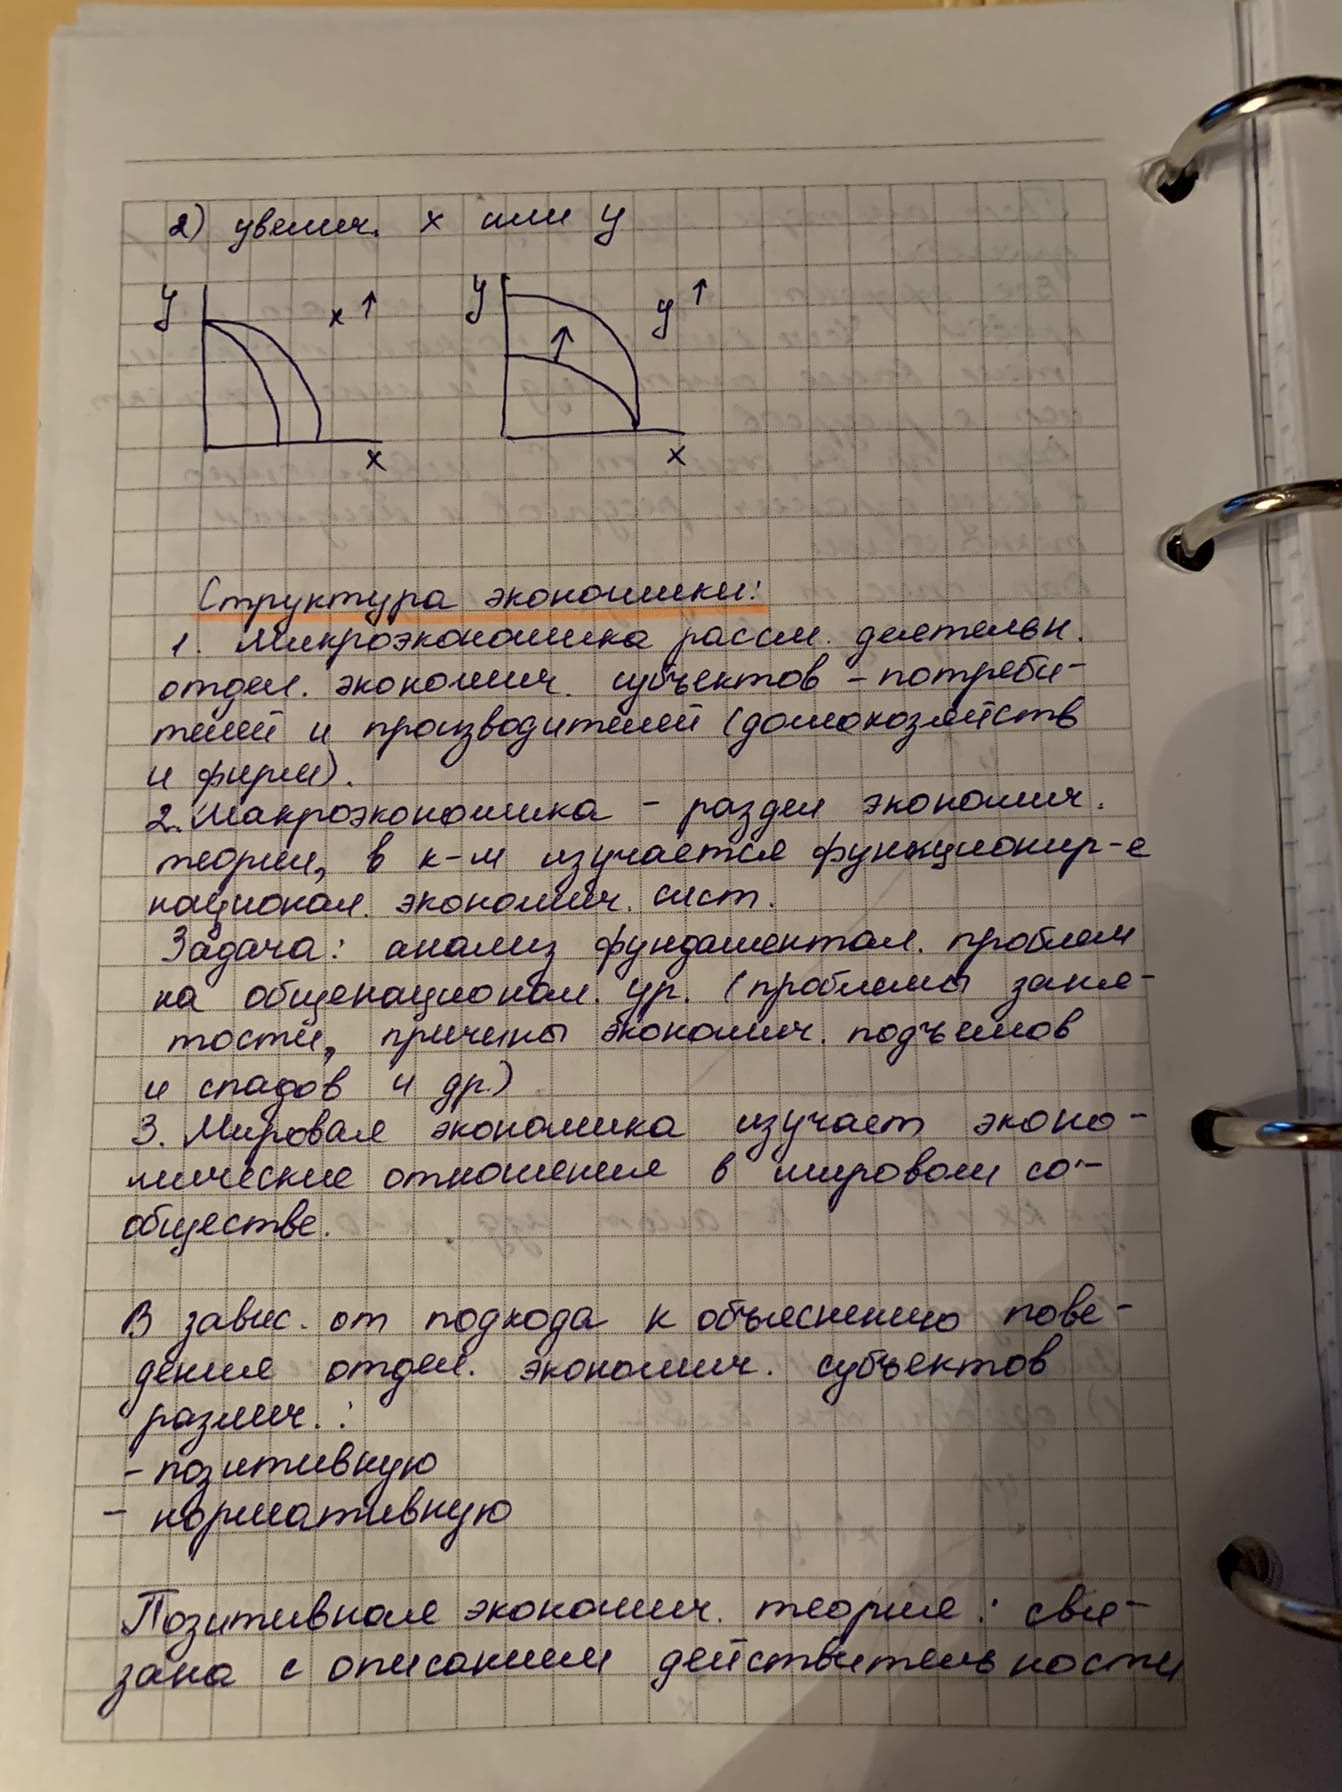 2) увелич. х или у
у
х↑
х
у
у↑
х
Структура экономики:
1. Микроэкономика рассм. деятельн.
отдел. экономич. субъектов - потреби-
телей и производителей (домохозяйств
и фирм).
2. Макроэкономика - раздел экономич.
теории, в к-м изучается функционир-е
национал. экономич. сист.
Задача: анализ фундаментал. проблем
на общенационал. ур. (проблемы заня-
тости, причины экономич. подъёмов
и спадов и др.)
3. Мировая экономика изучает эконо-
мические отношения в мировом со-
обществе.
В завис. от подхода к объяснению пове-
дения отдел. экономич. субъектов
различ.:
- позитивную
- нормативную
Позитивная экономич. теория: свя-
зана с описанием действительности